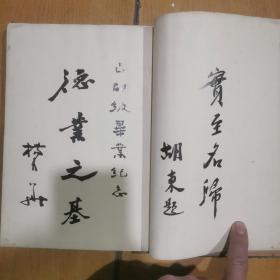 實至名歸
胡東題
己卯級畢業紀念
德業之基